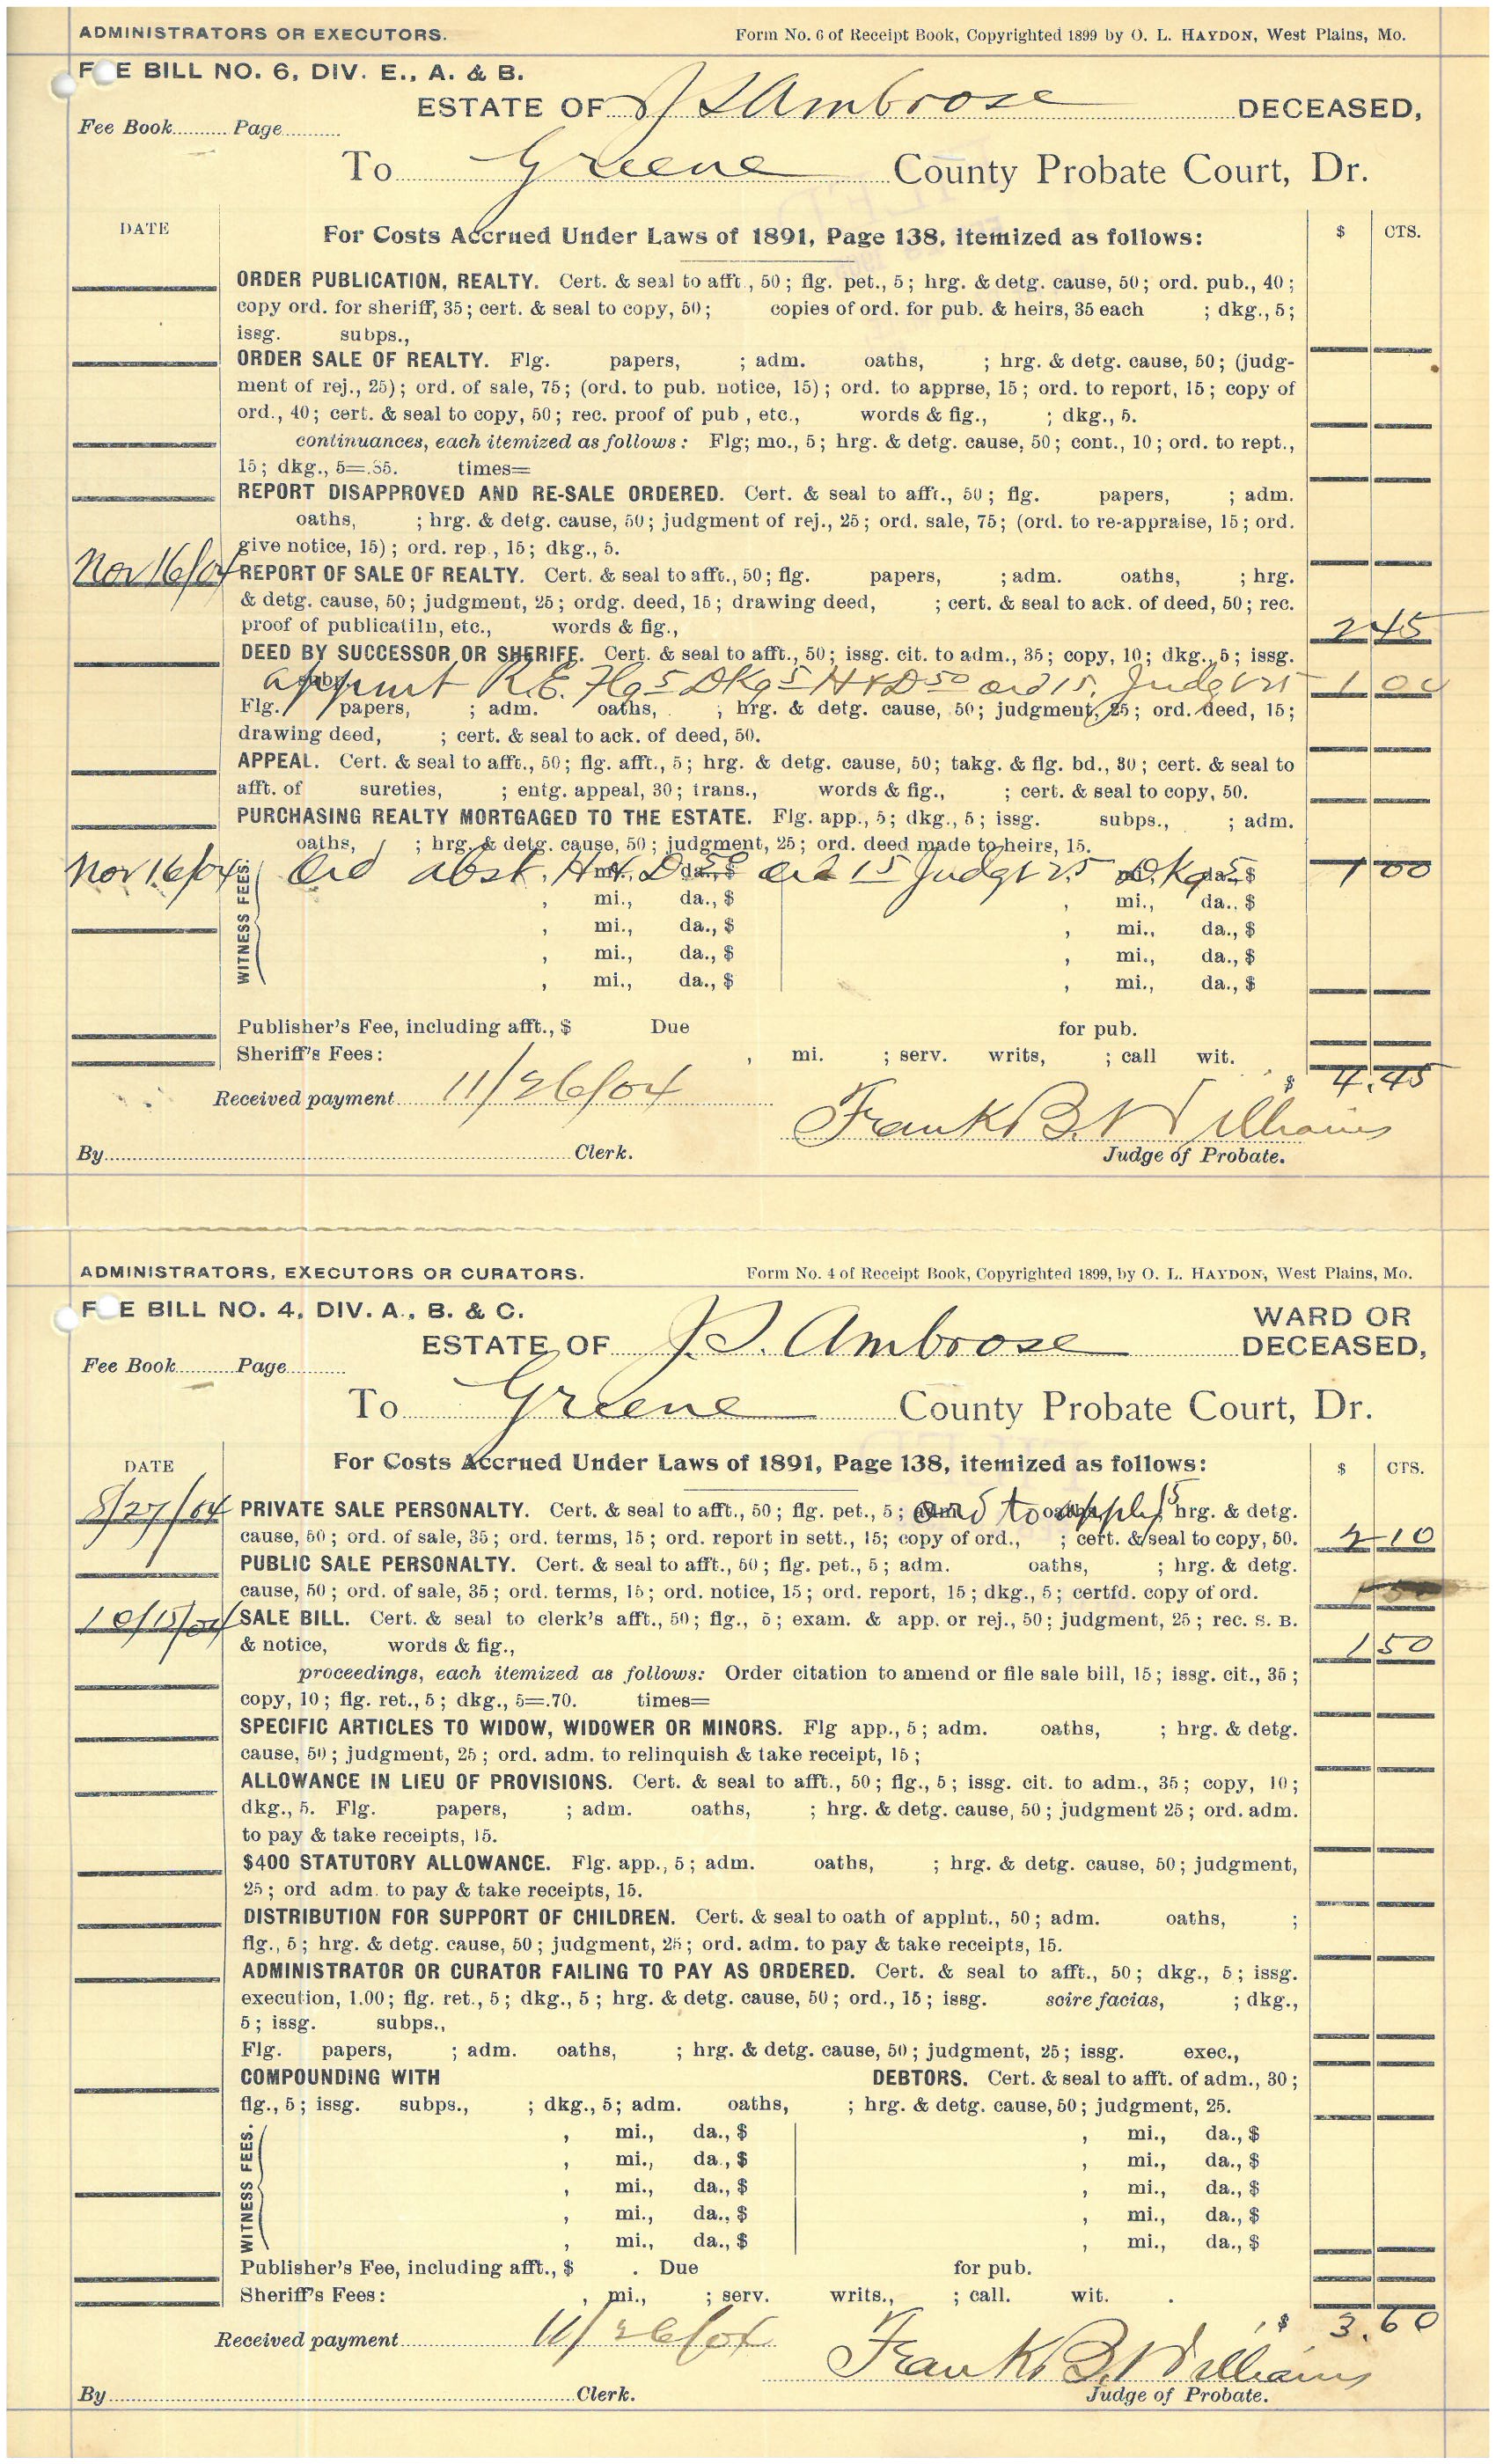 ADMINISTRATORS OR EXECUTORS. Form No. 6 of Receipt Book, Copyrighted 1899 by O. L. HAYDON, West Plains, Mo.
F E BILL NO. 6, DIV. E., A. & B.
ESTATE OF J S Ambrose DECEASED,
Fee Book Page
To Greene County Probate Court, Dr.
DATE For Costs Accrued Under Laws of 1891, Page 138, itemized as follows: $ CTS.
ORDER PUBLICATION, REALTY. Cert. & seal to afft., 50; flg. pet., 5; hrg. & detg. cause, 50; ord. pub., 40;
copy ord. for sheriff, 35; cert. & seal to copy, 50; copies of ord. for pub. & heirs, 35 each ; dkg., 5;
issg. subps.,
ORDER SALE OF REALTY. Flg. papers, ; adm. oaths, ; hrg. & detg. cause, 50; (judg-
ment of rej., 25); ord. of sale, 75; (ord. to pub. notice, 15); ord. to apprse, 15; ord. to report, 15; copy of
ord., 40; cert. & seal to copy, 50; rec. proof of pub, etc., words & fig., ; dkg., 5.
continuances, each itemized as follows: Flg; mo., 5; hrg. & detg. cause, 50; cont., 10; ord. to rept.,
15; dkg., 5=.85. times=
REPORT DISAPPROVED AND RE-SALE ORDERED. Cert. & seal to afft., 50; flg. papers, ; adm.
oaths, ; hrg. & detg. cause, 50; judgment of rej., 25; ord. sale, 75; (ord. to re-appraise, 15; ord.
give notice, 15); ord. rep., 15; dkg., 5.
Nov 16/04 REPORT OF SALE OF REALTY. Cert. & seal to afft., 50; flg. papers, ; adm. oaths, ; hrg.
& detg. cause, 50; judgment, 25; ordg. deed, 15; drawing deed, ; cert. & seal to ack. of deed, 50; rec.
proof of publicatiln, etc., words & fig., 2 45
DEED BY SUCCESSOR OR SHERIFF. Cert. & seal to afft., 50; issg. cit. to adm., 35; copy, 10; dkg., 5; issg.
subp. R.E. Flg 5 DKg 5 H & D 50 ord 15. Judgt 25 1 00
Flg. papers, ; adm. oaths, ; hrg. & detg. cause, 50; judgment, 25; ord. deed, 15;
drawing deed, ; cert. & seal to ack. of deed, 50.
APPEAL. Cert. & seal to afft., 50; flg. afft., 5; hrg. & detg. cause, 50; takg. & flg. bd., 30; cert. & seal to
afft. of sureties, ; entg. appeal, 30; trans., words & fig., ; cert. & seal to copy, 50.
PURCHASING REALTY MORTGAGED TO THE ESTATE. Flg. app., 5; dkg., 5; issg. subps., ; adm.
oaths, ; hrg. & detg. cause, 50; judgment, 25; ord. deed made to heirs, 15.
Nov 16/04 WITNESS FEES. Ord abst. H & D 50 ord 15 Judgt 25 Dkg 5 1 00
, mi., da., $ , mi., da., $
, mi., da., $ , mi., da., $
, mi., da., $ , mi., da., $
, mi., da., $ , mi., da., $
Publisher's Fee, including afft., $ Due for pub.
Sheriff's Fees: , mi. ; serv. writs, ; call wit.
$ 4.45
Received payment 11/26/04
Frank B. Williams
By Clerk. Judge of Probate.
ADMINISTRATORS, EXECUTORS OR CURATORS. Form No. 4 of Receipt Book, Copyrighted 1899, by O. L. HAYDON, West Plains, Mo.
F E BILL NO. 4, DIV. A., B. & C. WARD OR
ESTATE OF J. S. Ambrose DECEASED,
Fee Book Page
To Greene County Probate Court, Dr.
DATE For Costs Accrued Under Laws of 1891, Page 138, itemized as follows: $ CTS.
8/27/04 PRIVATE SALE PERSONALTY. Cert. & seal to afft., 50; flg. pet., 5; ord to 15 hrg. & detg.
cause, 50; ord. of sale, 35; ord. terms, 15; ord. report in sett., 15; copy of ord., ; cert. & seal to copy, 50. 2 10
PUBLIC SALE PERSONALTY. Cert. & seal to afft., 50; flg. pet., 5; adm. oaths, ; hrg. & detg.
cause, 50; ord. of sale, 35; ord. terms, 15; ord. notice, 15; ord. report, 15; dkg., 5; certfd. copy of ord.
10/15/04 SALE BILL. Cert. & seal to clerk's afft., 50; flg., 5; exam. & app. or rej., 50; judgment, 25; rec. S. B.
& notice, words & fig., 1 50
proceedings, each itemized as follows: Order citation to amend or file sale bill, 15; issg. cit., 35;
copy, 10; flg. ret., 5; dkg., 5=.70. times=
SPECIFIC ARTICLES TO WIDOW, WIDOWER OR MINORS. Flg app., 5; adm. oaths, ; hrg. & detg.
cause, 50; judgment, 25; ord. adm. to relinquish & take receipt, 15;
ALLOWANCE IN LIEU OF PROVISIONS. Cert. & seal to afft., 50; flg., 5; issg. cit. to adm., 35; copy, 10;
dkg., 5. Flg. papers, ; adm. oaths, ; hrg. & detg. cause, 50; judgment 25; ord. adm.
to pay & take receipts, 15.
$400 STATUTORY ALLOWANCE. Flg. app., 5; adm. oaths, ; hrg. & detg. cause, 50; judgment,
25; ord adm. to pay & take receipts, 15.
DISTRIBUTION FOR SUPPORT OF CHILDREN. Cert. & seal to oath of applnt., 50; adm. oaths, ;
flg., 5; hrg. & detg. cause, 50; judgment, 25; ord. adm. to pay & take receipts, 15.
ADMINISTRATOR OR CURATOR FAILING TO PAY AS ORDERED. Cert. & seal to afft., 50; dkg., 5; issg.
execution, 1.00; flg. ret., 5; dkg., 5; hrg. & detg. cause, 50; ord., 15; issg. scire facias, ; dkg.,
5; issg. subps.,
Flg. papers, ; adm. oaths, ; hrg. & detg. cause, 50; judgment, 25; issg. exec.,
COMPOUNDING WITH DEBTORS. Cert. & seal to afft. of adm., 30;
flg., 5; issg. subps., ; dkg., 5; adm. oaths, ; hrg. & detg. cause, 50; judgment, 25.
WITNESS FEES. , mi., da., $ , mi., da., $
, mi., da., $ , mi., da., $
, mi., da., $ , mi., da., $
, mi., da., $ , mi., da., $
, mi., da., $ , mi., da., $
Publisher's Fee, including afft., $ . Due for pub.
Sheriff's Fees: , mi., ; serv. writs., ; call. wit.
$ 3.60
Received payment 11/26/04
Frank B. Williams
By Clerk. Judge of Probate.